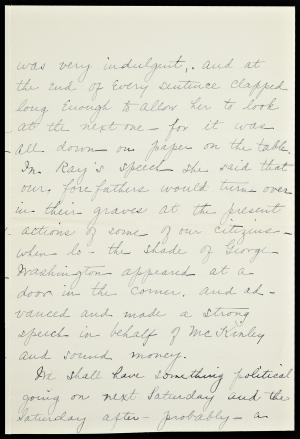 was very indulgent, and at
the end of every sentence clapped
long enough to allow her to look
at the next one - for it was
all down on paper on the table.
In Ray's speech she said that
our forefathers would turn over
in their graves at the present
actions of some of our citizens -
when lo - the shade of George
Washington appeared at a
door in the corner. and ad-
vanced and made a strong
speech in behalf of McKinley
and sound money.
We shall have something political
going on next Saturday and the
Saturday after - probably - a